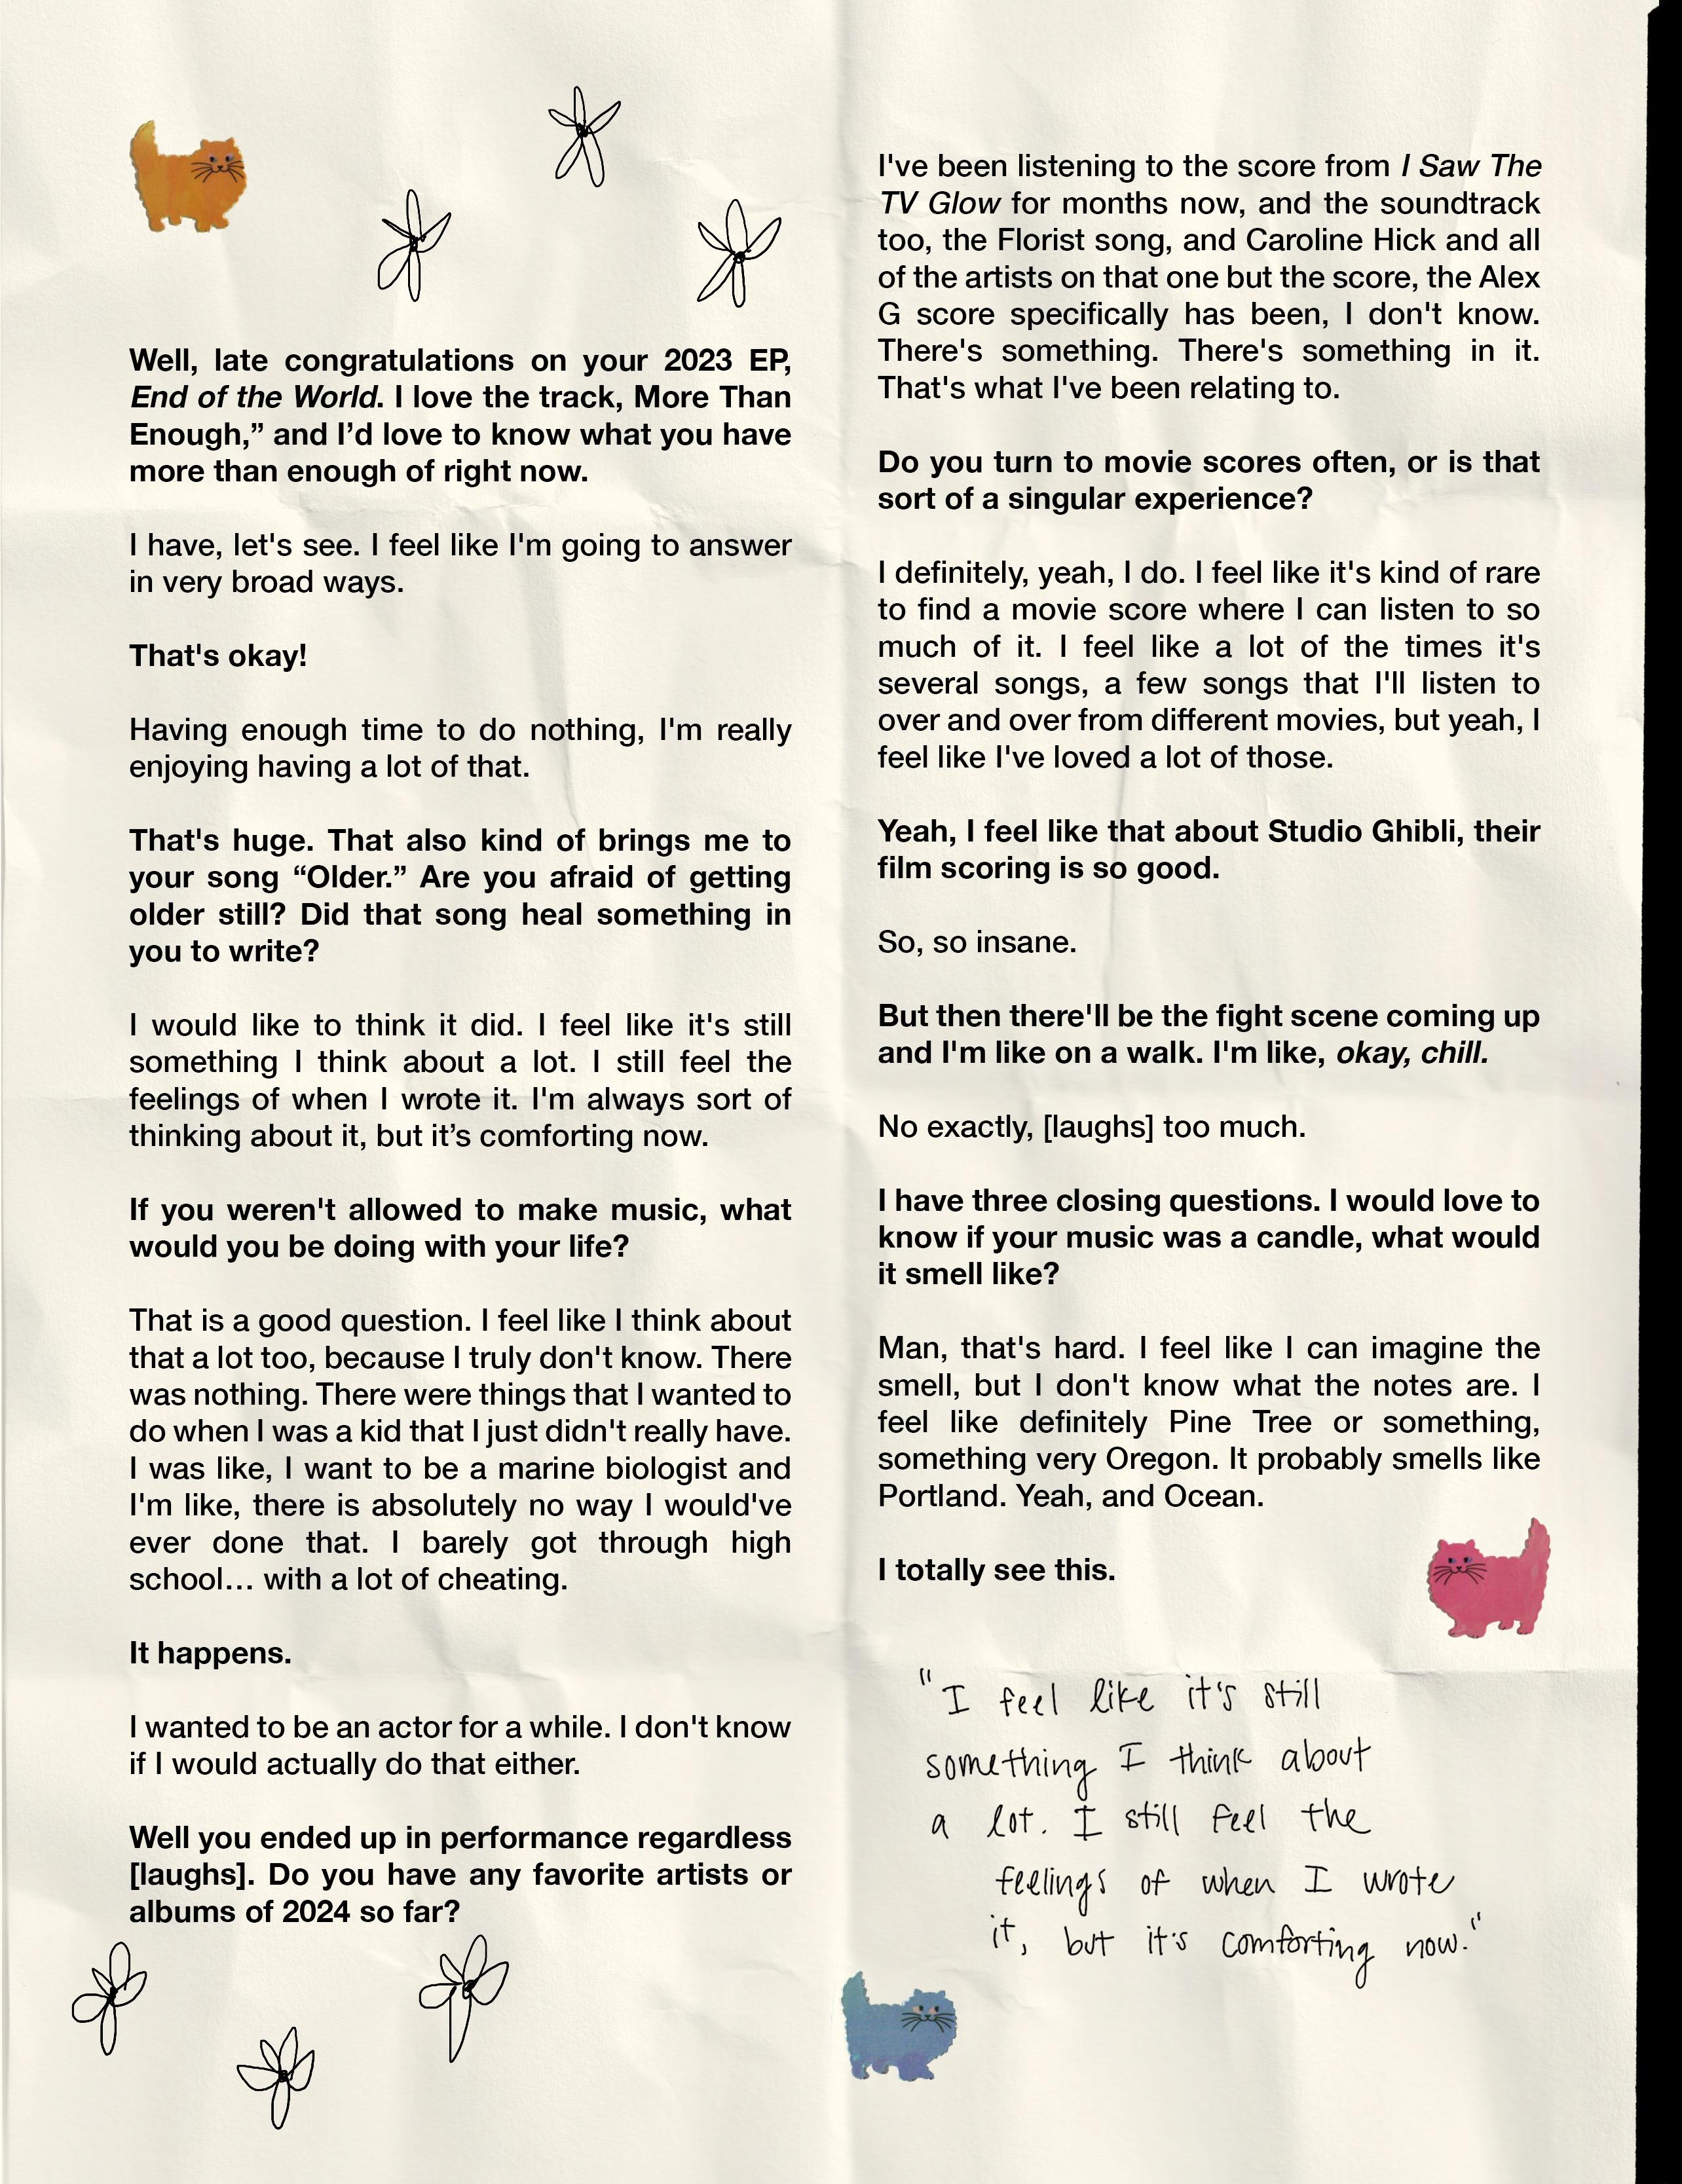 Well, late congratulations on your 2023 EP,
End of the World. I love the track, More Than
Enough,” and I’d love to know what you have
more than enough of right now.
I have, let's see. I feel like I'm going to answer
in very broad ways.
That's okay!
Having enough time to do nothing, I'm really
enjoying having a lot of that.
That's huge. That also kind of brings me to
your song “Older.” Are you afraid of getting
older still? Did that song heal something in
you to write?
I would like to think it did. I feel like it's still
something I think about a lot. I still feel the
feelings of when I wrote it. I'm always sort of
thinking about it, but it’s comforting now.
If you weren't allowed to make music, what
would you be doing with your life?
That is a good question. I feel like I think about
that a lot too, because I truly don't know. There
was nothing. There were things that I wanted to
do when I was a kid that I just didn't really have.
I was like, I want to be a marine biologist and
I'm like, there is absolutely no way I would've
ever done that. I barely got through high
school… with a lot of cheating.
It happens.
I wanted to be an actor for a while. I don't know
if I would actually do that either.
Well you ended up in performance regardless
[laughs]. Do you have any favorite artists or
albums of 2024 so far?
I've been listening to the score from I Saw The
TV Glow for months now, and the soundtrack
too, the Florist song, and Caroline Hick and all
of the artists on that one but the score, the Alex
G score specifically has been, I don't know.
There's something. There's something in it.
That's what I've been relating to.
Do you turn to movie scores often, or is that
sort of a singular experience?
I definitely, yeah, I do. I feel like it's kind of rare
to find a movie score where I can listen to so
much of it. I feel like a lot of the times it's
several songs, a few songs that I'll listen to
over and over from different movies, but yeah, I
feel like I've loved a lot of those.
Yeah, I feel like that about Studio Ghibli, their
film scoring is so good.
So, so insane.
But then there'll be the fight scene coming up
and I'm like on a walk. I'm like, okay, chill.
No exactly, [laughs] too much.
I have three closing questions. I would love to
know if your music was a candle, what would
it smell like?
Man, that's hard. I feel like I can imagine the
smell, but I don't know what the notes are. I
feel like definitely Pine Tree or something,
something very Oregon. It probably smells like
Portland. Yeah, and Ocean.
I totally see this.
"I feel like it's still
something I think about
a lot. I still feel the
feelings of when I wrote
it, but it's comforting now."